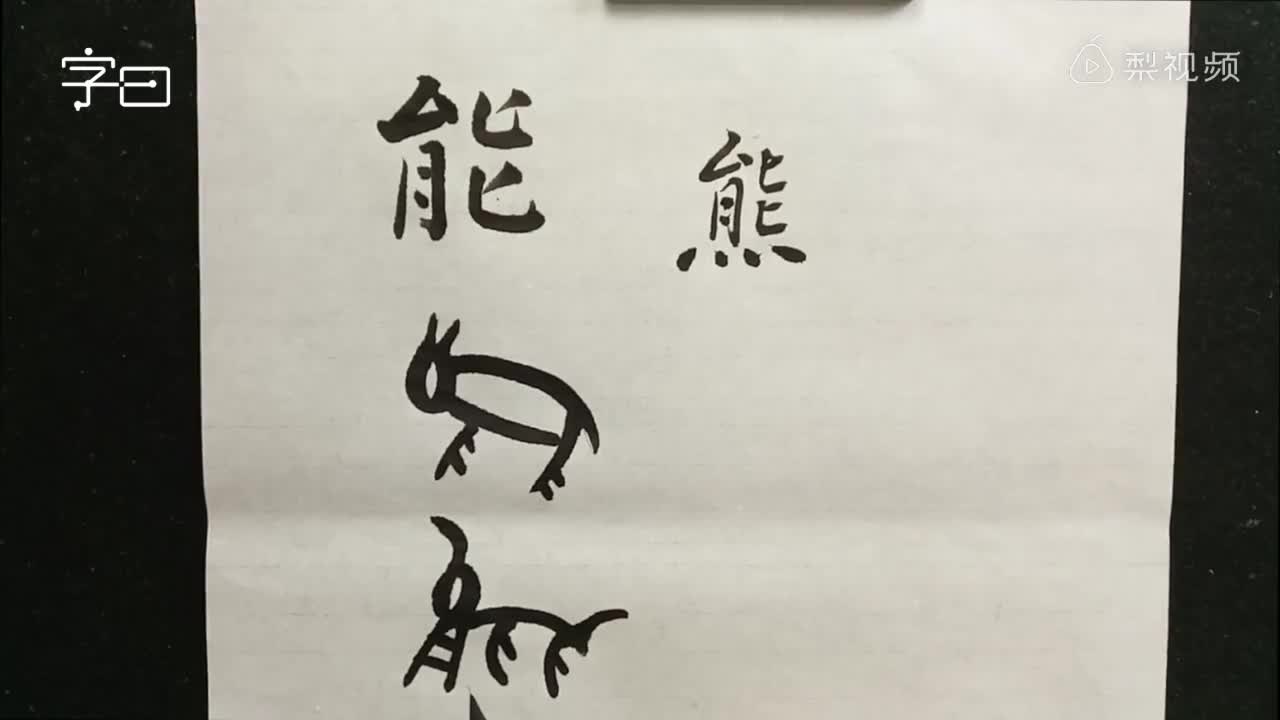 字曰
梨视频
能
熊